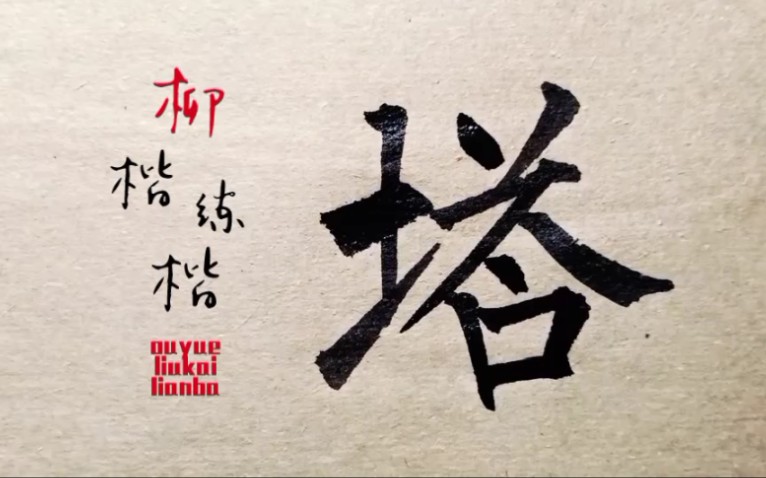 柳
楷
练
楷
ouyue
liukai
lianba
塔